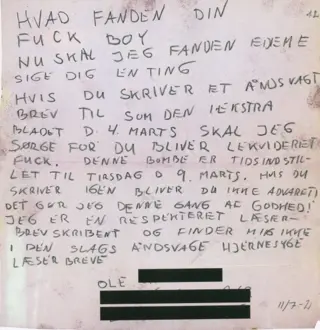 HVAD FANDEN DIN
FUCK BOY
NU SKAL JEG FANDEN EDEME
SIGE DIG EN TING
HVIS DU SKRIVER ET ÅNDSVAGT
BREV TIL SOM DEN I EKSTRA
BLADET D. 4. MARTS SKAL JEG
SØRGE FOR DU BLIVER LEKVIDERET
FUCK. DENNE BOMBE ER TIDSINDSTIL-
LET TIL TIRSDAG D 9. MARTS. HVIS DU
SKRIVER IGEN BLIVER DU IKKE ADVARET)
DET GØR JEG DENNE GANG AF GODHED!
JEG ER EN RESPEKTERET LÆSER-
BREVSKRIBENT OG FINDER MIG IKKE
I DEN SLAGS ÅNDSVAGE HJERNESYGE
LÆSER BREVE
OLE